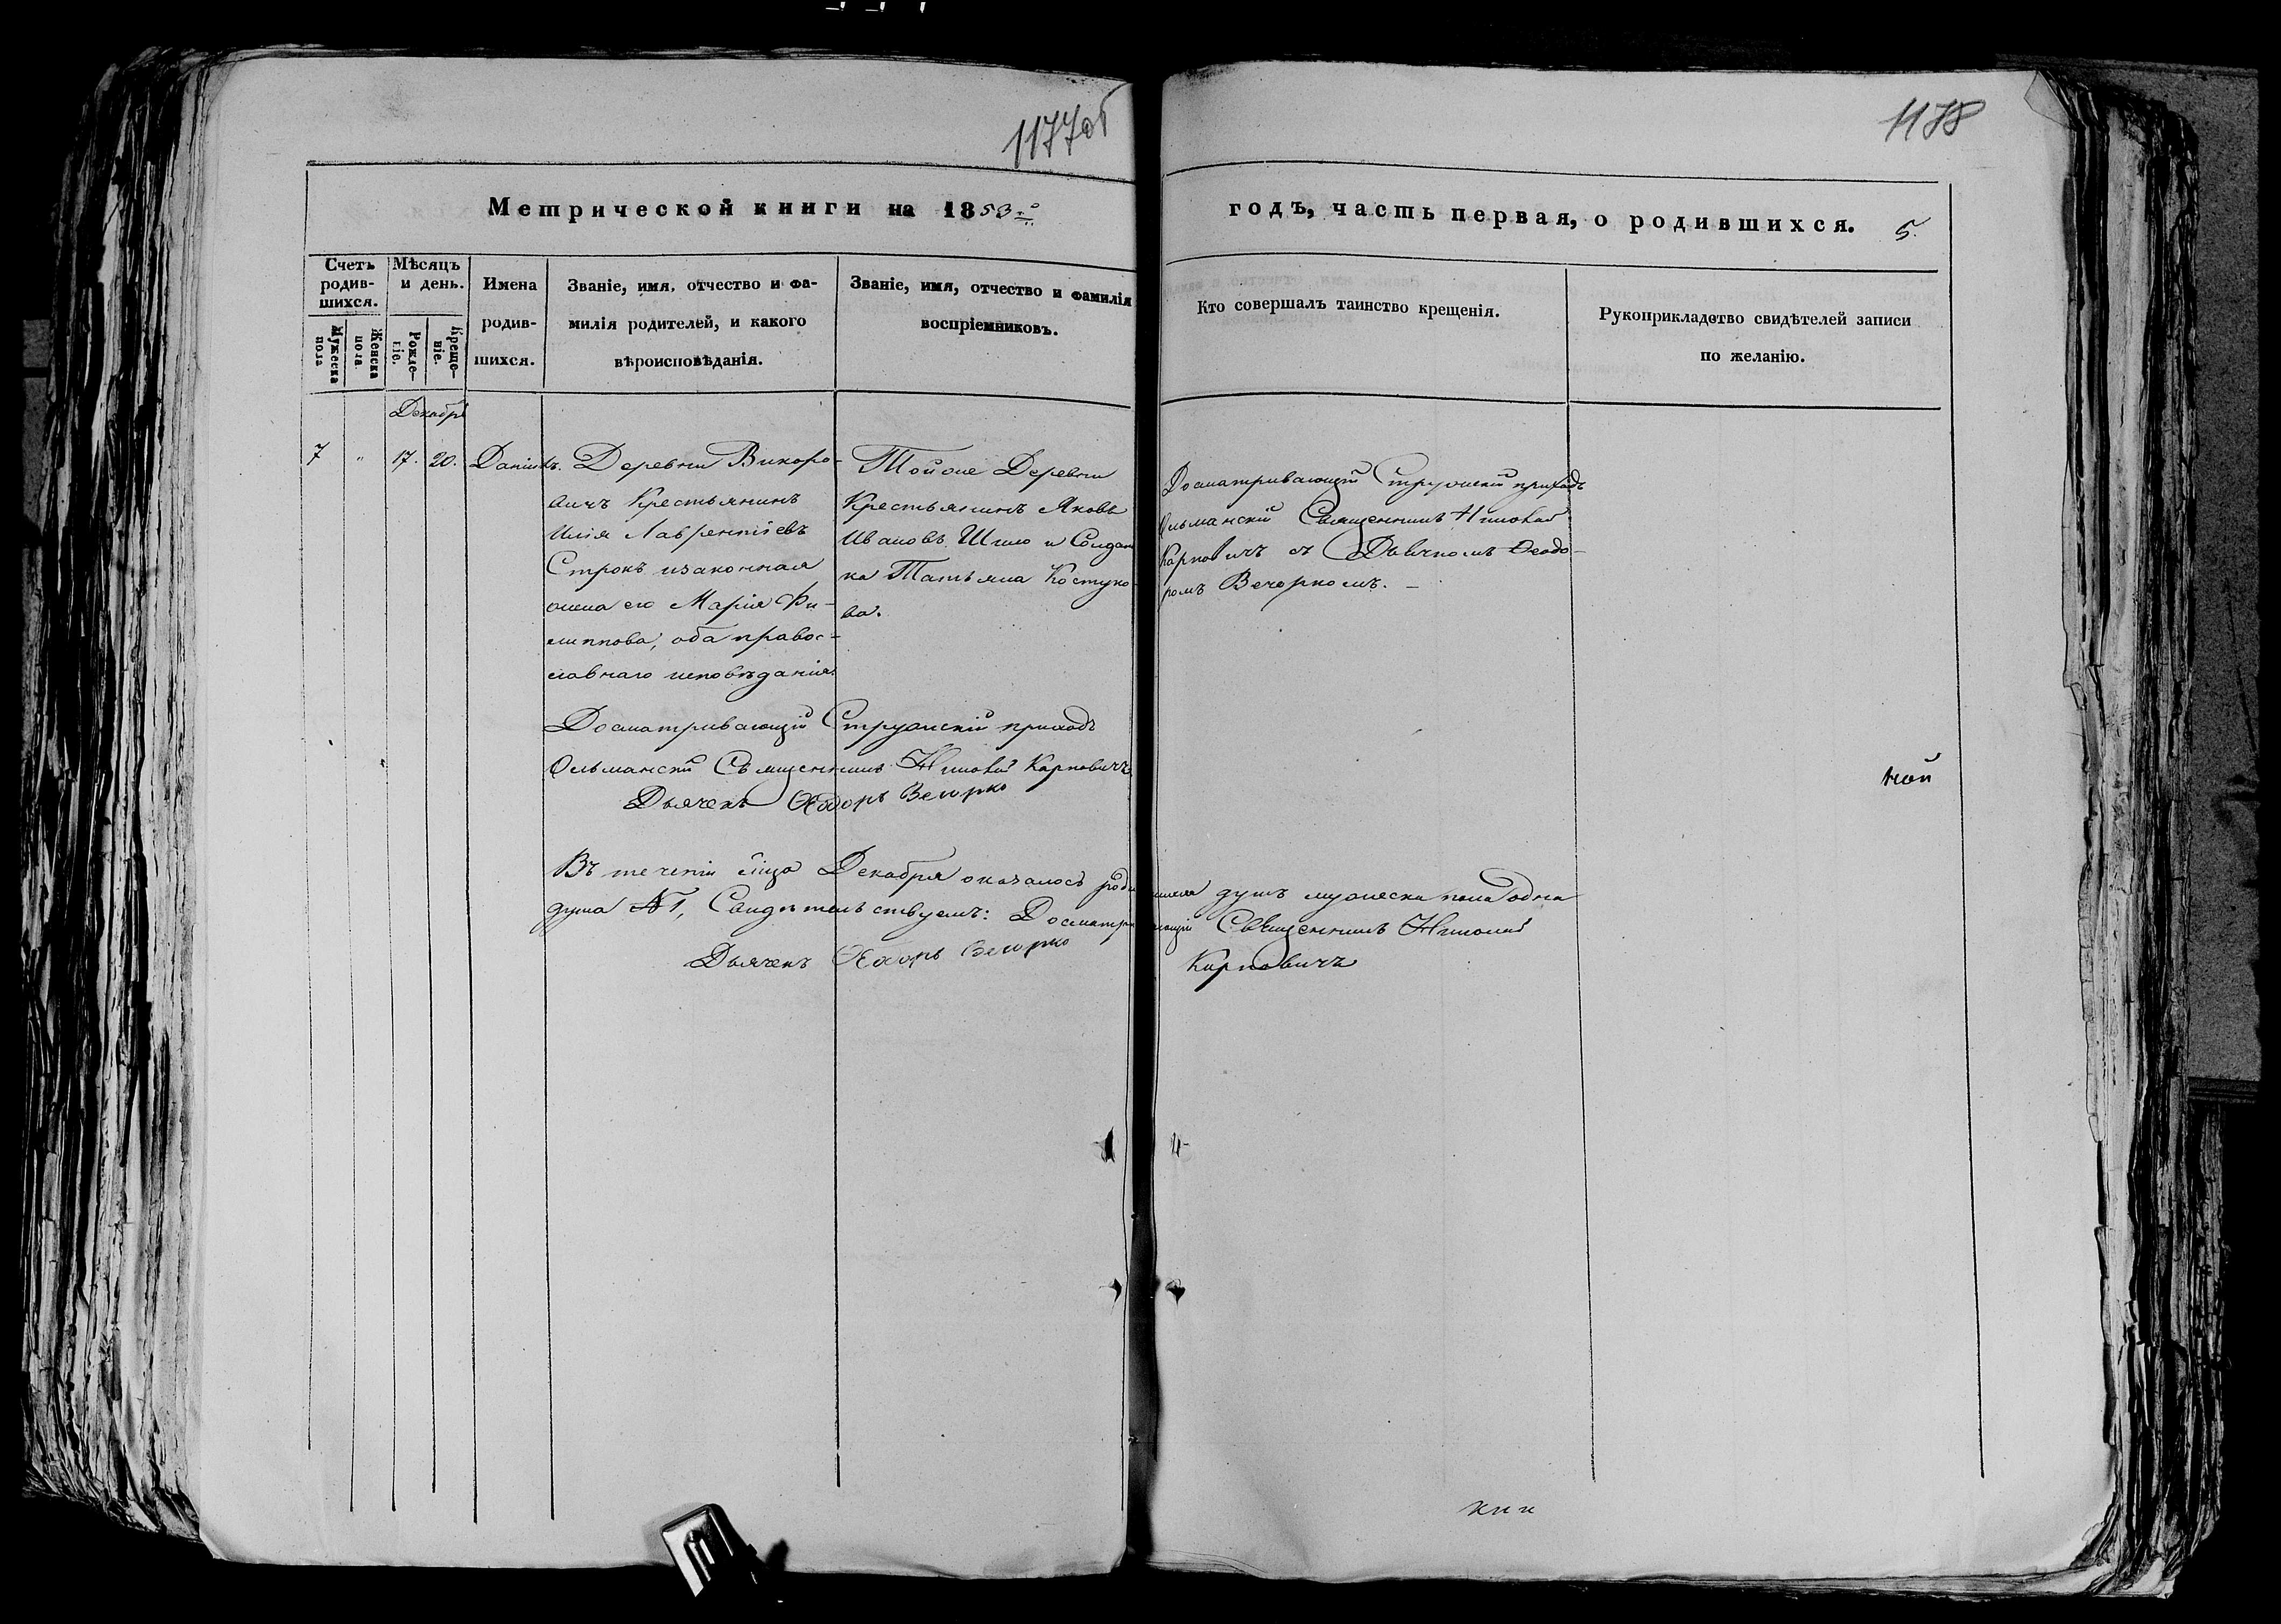 1177об
1178
Метрической книги на 1853го
годъ, часть первая, о родившихся. 5.
Счетъ родившихся.
Мужеска пола
Женска пола
Мѣсяцъ и день.
Рожденіе.
Крещеніе.
Имена
родив-
шихся.
Званіе, имя, отчество и фа-
милія родителей, и какого
вѣроисповѣданія.
Званіе, имя, отчество и фамилія
воспріемниковъ.
Кто совершалъ таинство крещенія.
Рукоприкладство свидѣтелей записи
по желанію.
Декабрь
7 " 17. 20. Даніилъ.
Деревни Викоро-
вичъ Крестьянинъ
Илія Лаврентіевъ
Строкъ изаконная
жена его Марія Фи-
липпова, оба правос-
лавнаго исповѣданія.
Тойже Деревни
Крестьянинъ Яковъ
Ивановъ Шило и Солдат
ка Татьяна Костуко-
ва.
Досматривающій приходъ
Ольманскій Священникъ Николай
Карповичъ съ Дьячкомъ Ѳеодо-
ромъ Вечоркомъ.
Досматривающій приходъ
Ольманскій Священникъ Николай Карповичъ
Дьячекъ Ѳеодоръ Вечорко
Въ теченіи Декабря оказалось родившихся душъ мужеска пола одна
душа №1, Свидѣтельствуемъ: Досматривающій Священникъ Николай
Карповичъ
Дьячекъ Ѳеодоръ Вечорко
ной